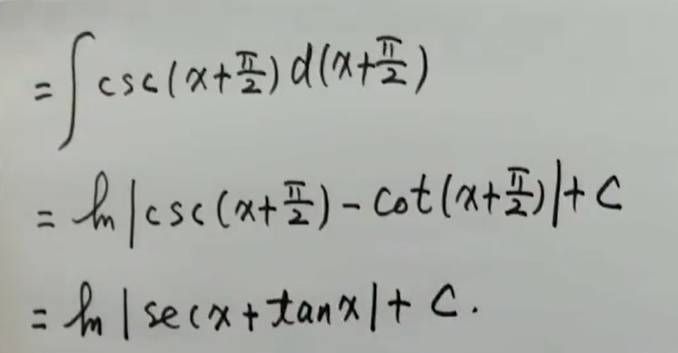 = ∫ csc(x+π/2) d(x+π/2)
= ln|csc(x+π/2) - cot(x+π/2)| + C
= ln|secx + tanx| + C.